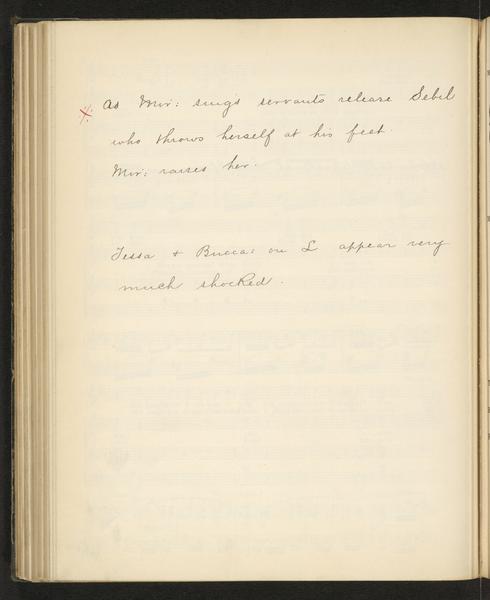 As Mir: sings servants release Sebel
who throws herself at his feet.
Mir: raises her.
Tessa + Bucca: on L appear very
much shocked.